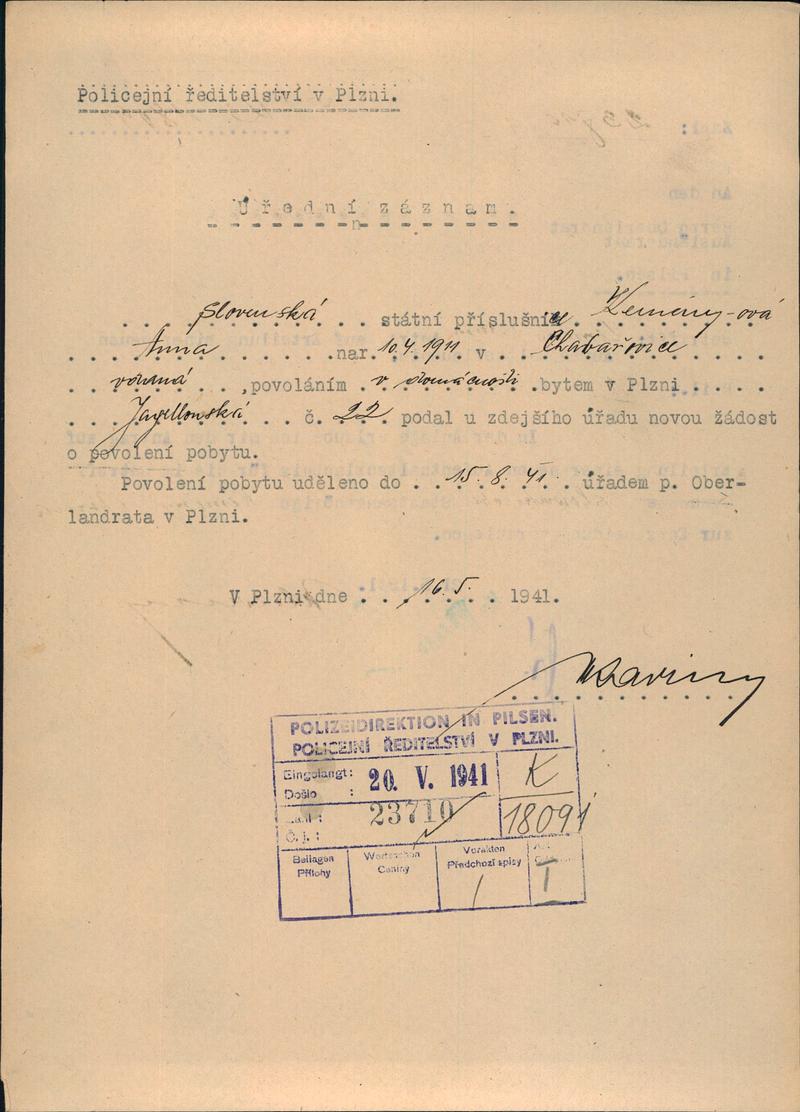 Policejní ředitelství v Plzni.
Úřední záznam.
Slovenská státní příslušnice Kemény-ová
Anna nar. 10.4.1911 v Chabařovice
vdaná, povoláním v domácnosti bytem v Plzni
Jagellonská č. 22 podal u zdejšího úřadu novou žádost
o povolení pobytu.
Povolení pobytu uděleno do 15.8.41. úřadem p. Ober-
landrata v Plzni.
V Plzni dne 16.5. 1941.
POLIZEIDIREKTION IN PILSEN.
POLICEJNÍ ŘEDITELSTVÍ V PLZNI.
Eingelangt:
Došlo :
20. V. 1941
K
Č. j. :
23710
18091
Beilagen
Přílohy
Ceniny
Vorakten
Předchozí spisy